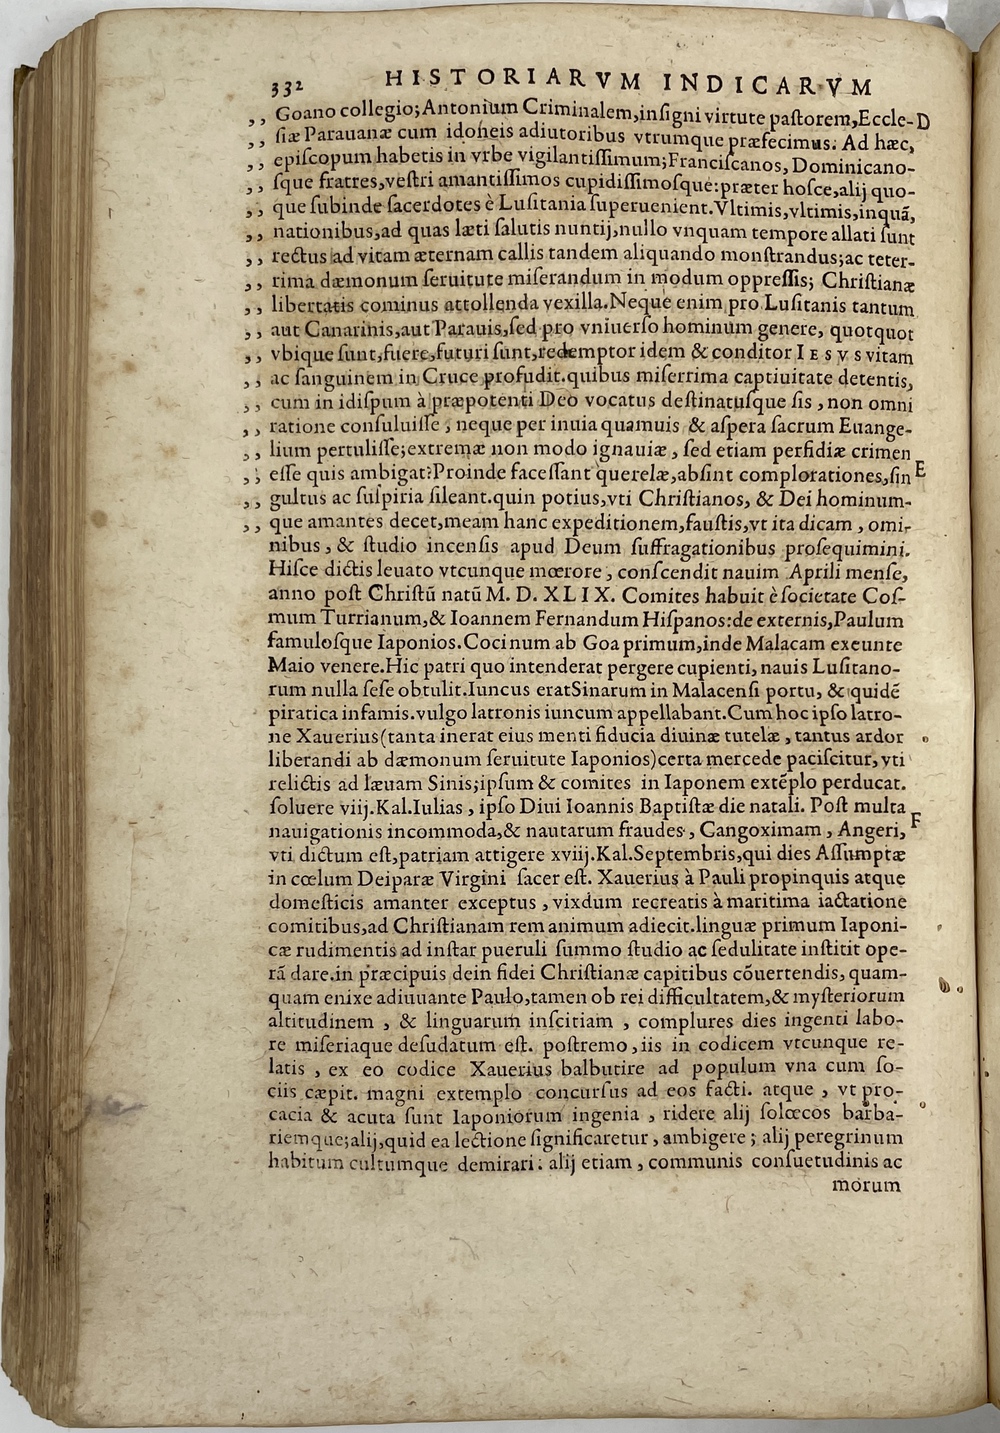 332 HISTORIARVM INDICARVM
,, Goano collegio; Antonium Criminalem, inſigni virtute paſtorem, Eccle- D
,, ſiæ Parauanæ cum idoneis adiutoribus vtrumque præfecimus. Ad hæc,
,, epiſcopum habetis in vrbe vigilantiſſimum; Franciſcanos, Dominicano-
,, ſque fratres, veſtri amantiſſimos cupidiſſimoſque: præter hoſce, alij quo-
,, que ſubinde ſacerdotes è Luſitania ſuperuenient. Vltimis, vltimis, inquã,
,, nationibus, ad quas læti ſalutis nuntij, nullo vnquam tempore allati ſunt
,, rectus ad vitam æternam callis tandem aliquando monſtrandus; ac teter-
,, rima dæmonum ſeruitute miſerandum in modum oppreſſis; Chriſtianæ
,, libertatis cominus attollenda vexilla. Neque enim pro Luſitanis tantum
,, aut Canarinis, aut Parauis, ſed pro vniuerſo hominum genere, quotquot
,, vbique ſunt, fuere, futuri ſunt, redemptor idem & conditor IESVS vitam
,, ac ſanguinem in Cruce profudit. quibus miſerrima captiuitate detentis,
,, cum in idiſpum à præpotenti Deo vocatus deſtinatuſque ſis, non omni
,, ratione conſuluiſſe, neque per inuia quamuis & aſpera ſacrum Euange-
,, lium pertuliſſe; extremæ non modo ignauiæ, ſed etiam perfidiæ crimen
,, eſſe quis ambigat? Proinde faceſſant querelæ, abſint complorationes, ſin E
,, gultus ac ſuſpiria ſileant. quin potius, vti Chriſtianos, & Dei hominum-
,, que amantes decet, meam hanc expeditionem, fauſtis, vt ita dicam, omi-
nibus, & ſtudio incenſis apud Deum ſuffragationibus proſequimini.
Hiſce dictis leuato vtcunque mœrore, conſcendit nauim Aprili menſe,
anno poſt Chriſtũ natũ M. D. XLIX. Comites habuit è ſocietate Coſ-
mum Turrianum, & Ioannem Fernandum Hiſpanos: de externis, Paulum
famuloſque Iaponios. Cocinum ab Goa primum, inde Malacam exeunte
Maio venere. Hic patri quo intenderat pergere cupienti, nauis Luſitano-
rum nulla ſeſe obtulit. Iuncus erat Sinarum in Malacenſi portu, & quidẽ
piratica infamis. vulgo latronis iuncum appellabant. Cum hoc ipſo latro-
ne Xauerius (tanta inerat eius menti fiducia diuinæ tutelæ, tantus ardor
liberandi ab dæmonum ſeruitute Iaponios) certa mercede paciſcitur, vti
relictis ad læuam Sinis; ipſum & comites in Iaponem extẽplo perducat.
ſoluere viij. Kal. Iulias, ipſo Diui Ioannis Baptiſtæ die natali. Poſt multa F
nauigationis incommoda, & nautarum fraudes, Cangoximam, Angeri,
vti dictum eſt, patriam attigere xviij. Kal. Septembris, qui dies Aſſumptæ
in cœlum Deiparæ Virgini ſacer eſt. Xauerius à Pauli propinquis atque
domeſticis amanter exceptus, vixdum recreatis à maritima iactatione
comitibus, ad Chriſtianam rem animum adiecit. linguæ primum Iaponi-
cæ rudimentis ad inſtar pueruli ſummo ſtudio ac ſedulitate inſtitit ope-
rã dare. in præcipuis dein fidei Chriſtianæ capitibus cõuertendis, quam-
quam enixe adiuuante Paulo, tamen ob rei difficultatem, & myſteriorum
altitudinem, & linguarum inſcitiam, complures dies ingenti labo-
re miſeriaque deſudatum eſt. poſtremo, iis in codicem vtcunque re-
latis, ex eo codice Xauerius balbutire ad populum vna cum ſo-
ciis cæpit. magni extemplo concurſus ad eos facti. atque, vt pro-
cacia & acuta ſunt Iaponiorum ingenia, ridere alij ſolœcos barba-
riemque; alij, quid ea lectione ſignificaretur, ambigere; alij peregrinum
habitum cultumque demirari: alij etiam, communis conſuetudinis ac
morum